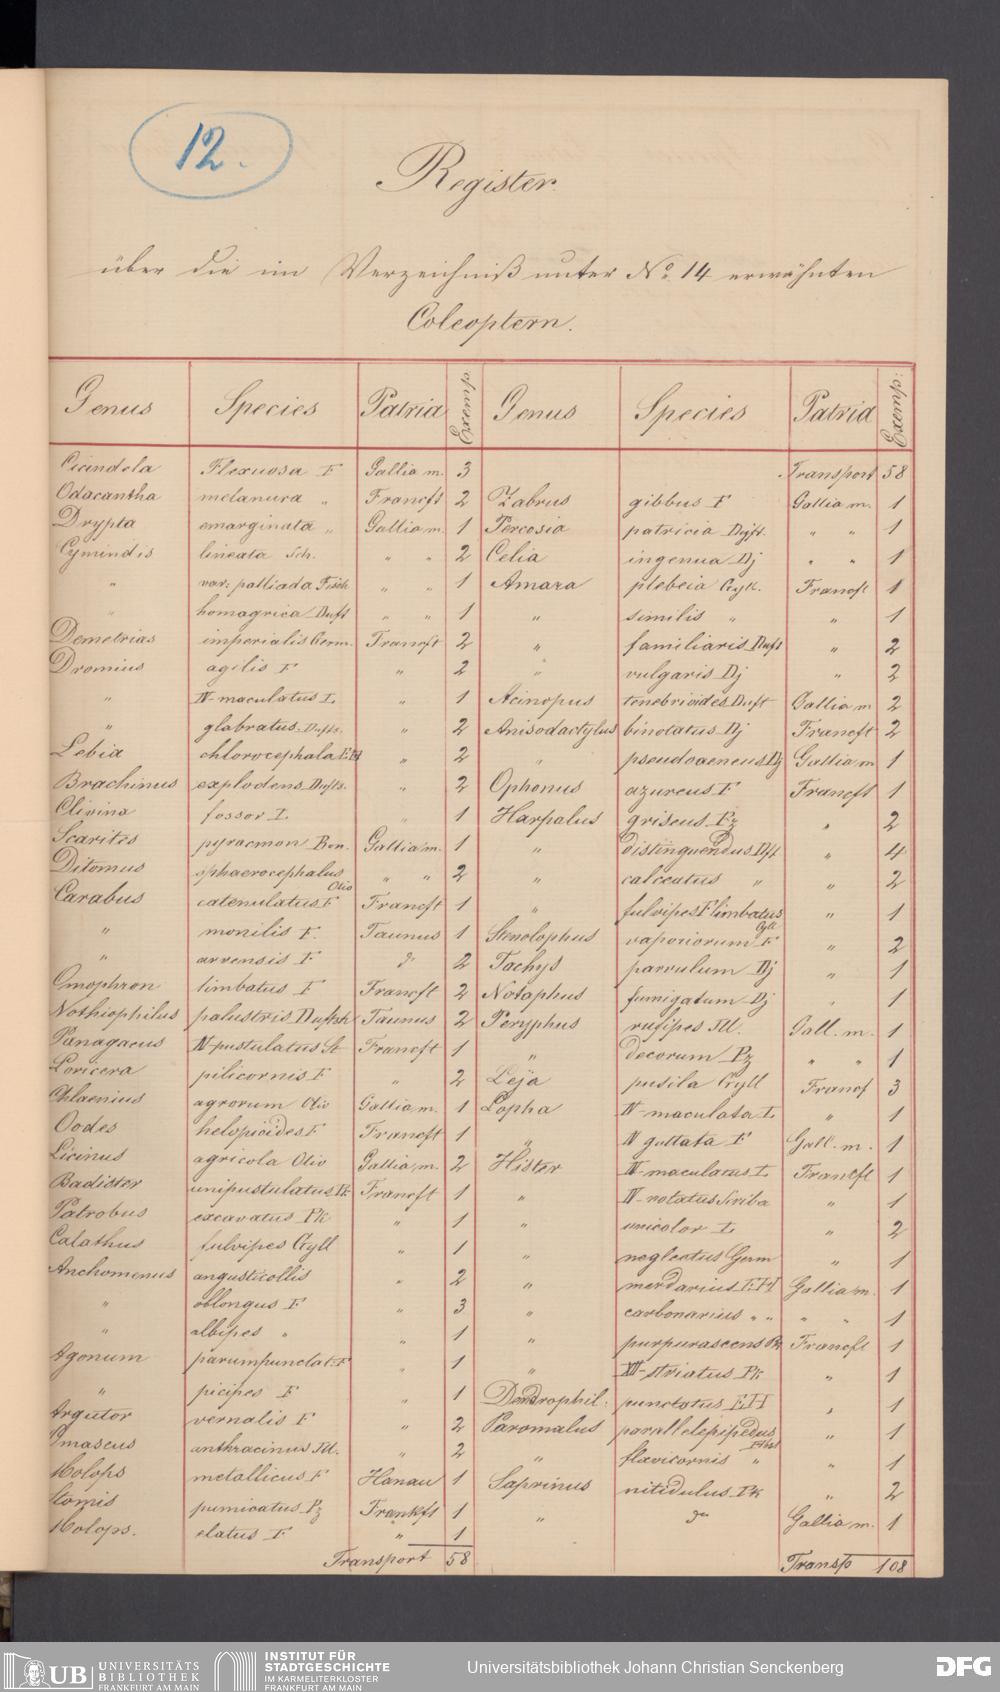 12.
Register.
über die im Verzeichniß unter No. 14 erwähnten
Coleoptern.
Genus Species Patria Exemp. Genus Species Patria Exemp:
Cicindela Flexuosa F Gallia m. 3 Transport 58
Odacantha melanura „ Francft 2 Zabrus gibbus F Gallia m. 1
Drypta emarginata „ Gallia m. 1 Percosia patricia Dft. „ „ 1
Cymindis lineata Sch. „ „ 2 Celia ingenua Dj „ „ 1
„ var: palliada Fisch „ „ 1 Amara plebeia Gyll. Francft 1
„ homagrica Duft „ „ 1 „ similis „ „ 1
Demetrias imperialis Germ. Francft 2 „ familiaris Duft „ 2
Dromius agilis F „ 2 „ vulgaris Dj „ 2
„ IV-maculatus L „ 1 Acinopus tenebrioides Duft Gallia m 2
„ glabratus Dufts. „ 2 Anisodactylus binotatus Dj Francft 2
Lebia chlorocephala EH „ 2 „ pseudoaeneus Dj Gallia m 1
Brachinus explodens Dufts. „ 2 Ophonus azureus F Francft 1
Clivina fossor L „ 1 Harpalus griseus Pz „ 2
Scarites pyracmon Bon. Gallia m. 1 „ distinguendus Dft „ 4
Ditomus sphaerocephalus Oliv „ „ 2 „ calceatus „ „ 2
Carabus catenulatus F Francft 1 „ fulvipes F limbatus Gyll „ 1
„ monilis F. Taunus 1 Stenolophus vaporiorum F „ 2
„ arvensis F do 2 Tachys parvulum Dj „ 1
Omophron limbatus F Francft 2 Notaphus fumigatum Dj „ 1
Nothiophilus palustris Duftsh Taunus 2 Peryphus rufipes Ill. Gall. m. 1
Panagaeus IV-pustulatus St Francft 1 „ decorum Pz „ „ 1
Loricera pilicornis F „ 2 Leja pusila Gyll Francf 3
Chlaenius agrorum Oliv Gallia m. 1 Lopha IV-maculata L „ 1
Oodes helopioides F Francft 1 „ IV guttata F Gall. m. 1
Licinus agricola Oliv Gallia m. 2 Hister IV-maculatus L Francft 1
Badister unipustulatus Pk Francft 1 „ IV-notatus Scriba „ 1
Patrobus excavatus Pk „ 1 „ unicolor L „ 2
Calathus fulvipes Gyll „ 1 „ neglectus Germ „ 1
Anchomenus angusticollis „ 2 „ merdarius EH Gallia m. 1
„ oblongus F „ 3 „ carbonarius „ „ „ „ 1
„ albipes „ „ 1 „ purpurascens Pk Francft 1
Agonum parumpunctat: F „ 1 „ XII-striatus Pk „ 1
„ picipes F „ 1 Dendrophil: punctatus EH „ 1
Argutor vernalis F „ 2 Paromalus parallelepipedus Hbst „ 1
Omaseus anthracinus Ill. „ 2 „ flavicornis „ „ 1
Molops metallicus F Hanau 1 Saprinus nitidulus Pk „ 2
Stomis pumicatus Pz Frankft 1 „ do Gallia m. 1
Molops. elatus F „ 1
Transport 58 Transp 108
UB UNIVERSITÄTS BIBLIOTHEK FRANKFURT AM MAIN
INSTITUT FÜR STADTGESCHICHTE IM KARMELITERKLOSTER FRANKFURT AM MAIN
Universitätsbibliothek Johann Christian Senckenberg
DFG